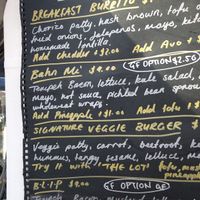 BREAKFAST BURRITO $
Chorizo patty, hash brown, tofu
fried onions, Jalapenos, mayo,
homemade tortilla.
Add Cheddar + $1.00 Add Avo +
Bahn Mi $9.00 GF OPTION $2.50
Tempeh Bacon, lettuce, kale salad,
mayo, hot sauce, pickled bean sprouts
wholemeal wraps.
Add Pineapple $1.00 Add tofu $
SIGNATURE VEGGIE BURGER $
Veggie patty, carrot, beetroot,
hummus, tangy sesame, lettuce,
Try it with 'THE LOT'! tofu,
pineapple +
B.L.T.P $9.00 GF OPTION
Tempeh Bacon